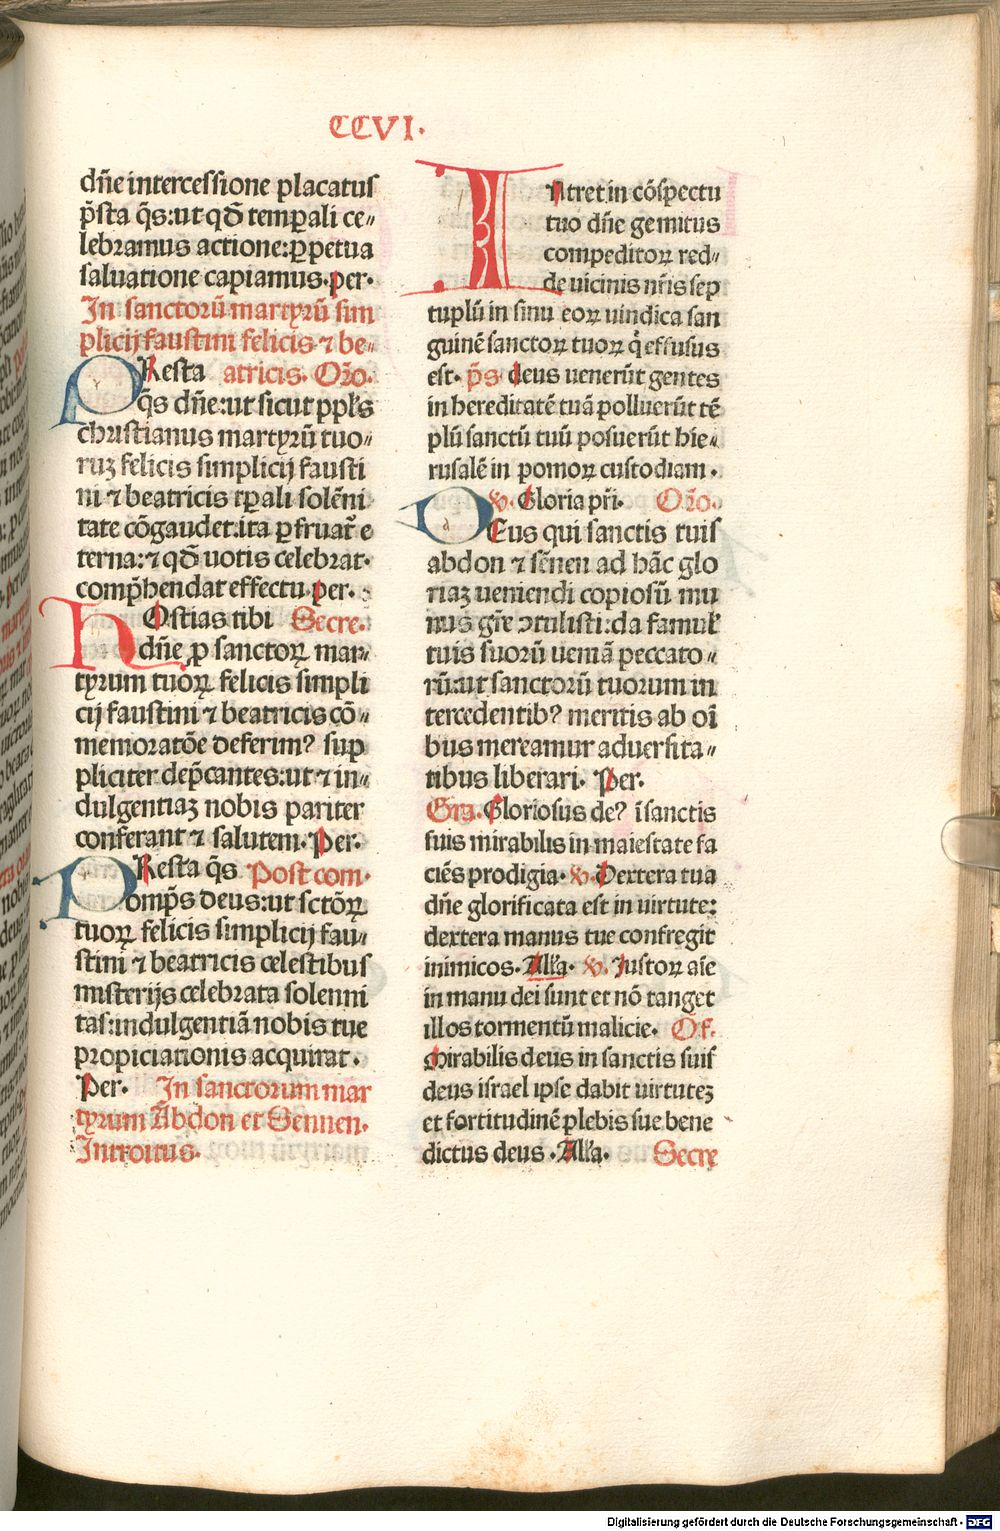 CCVI.
dñe intercessione placatus
p̃sta q̃s:ut qđ temꝑali ce-
lebramus actione:ꝑpetua
saluatione capiamus.per.
In sanctorũ martyrũ sim
plicij faustini felicis ⁊ be-
PResta atricis. Orõ.
q̃s dñe:ut sicut ppl's
christianus martyrũ tuo-
ruꝫ felicis simplicij fausti
ni ⁊ beatricis tꝑali solẽni
tate cõgaudet:ita ꝑfruat̃ e
terna:⁊ qđ uotis celebrat.
comp̃hendat effectu.per.
HOstias tibi Secre.
dñe ꝓ sanctoꝝ mar-
tyrum tuoꝝ felicis simpli
cij faustini ⁊ beatricis cõ-
memoratõe deferim? sup
pliciter dep̃cantes:ut ⁊ in-
dulgentiaꝫ nobis pariter
conferant ⁊ salutem. Per.
PResta q̃s Post com.
omp̃s deus:ut sctõꝝ
tuoꝝ felicis simplicij fau-
stini ⁊ beatricis celestibus
misterijs celebrata solenni
tas:indulgentiã nobis tue
propiciationis acquirat.
Per. In sanctorum mar
tyrum Abdon et Sennen.
Introitus.
INtret in cõspectu
tuo dñe gemitus
compeditoꝝ red-
de uicinis nr̃is sep
tuplũ in sinu eoꝝ uindica san
guinẽ sanctoꝝ tuoꝝ q̃ effusus
est. p̃s deus uenerũt gentes
in hereditatẽ tuã polluerũt tẽ
plũ sanctũ tuũ posuerũt hie-
rusalẽ in pomoꝝ custodiam.
℣. Gloria pr̃i. Orõ.
DEus qui sanctis tuis
abdon ⁊ sẽnen ad hãc glo
riaꝫ ueniendi copiosũ mu
nus gr̃e ↄtulisti:da famul'
tuis suorũ ueniã peccato-
rũ:ut sanctorũ tuorum in
tercedentib? meritis ab oĩ
bus mereamur aduersita-
tibus liberari. Per.
Gra. Gloriosus de? ĩ sanctis
suis mirabilis in maiestate fa
ciẽs prodigia. ℣. Dextera tua
dñe glorificata est in uirtute:
dextera manus tue confregit
inimicos. All'a. ℣. Iustoꝝ aĩe
in manu dei sunt et nõ tanget
illos tormentũ malicie. Of.
Mirabilis deus in sanctis suis
deus israel ipse dabit uirtuteꝫ
et fortitudinẽ plebis sue bene
dictus deus. All'a. Secre
Digitalisierung gefördert durch die Deutsche Forschungsgemeinschaft - DFG